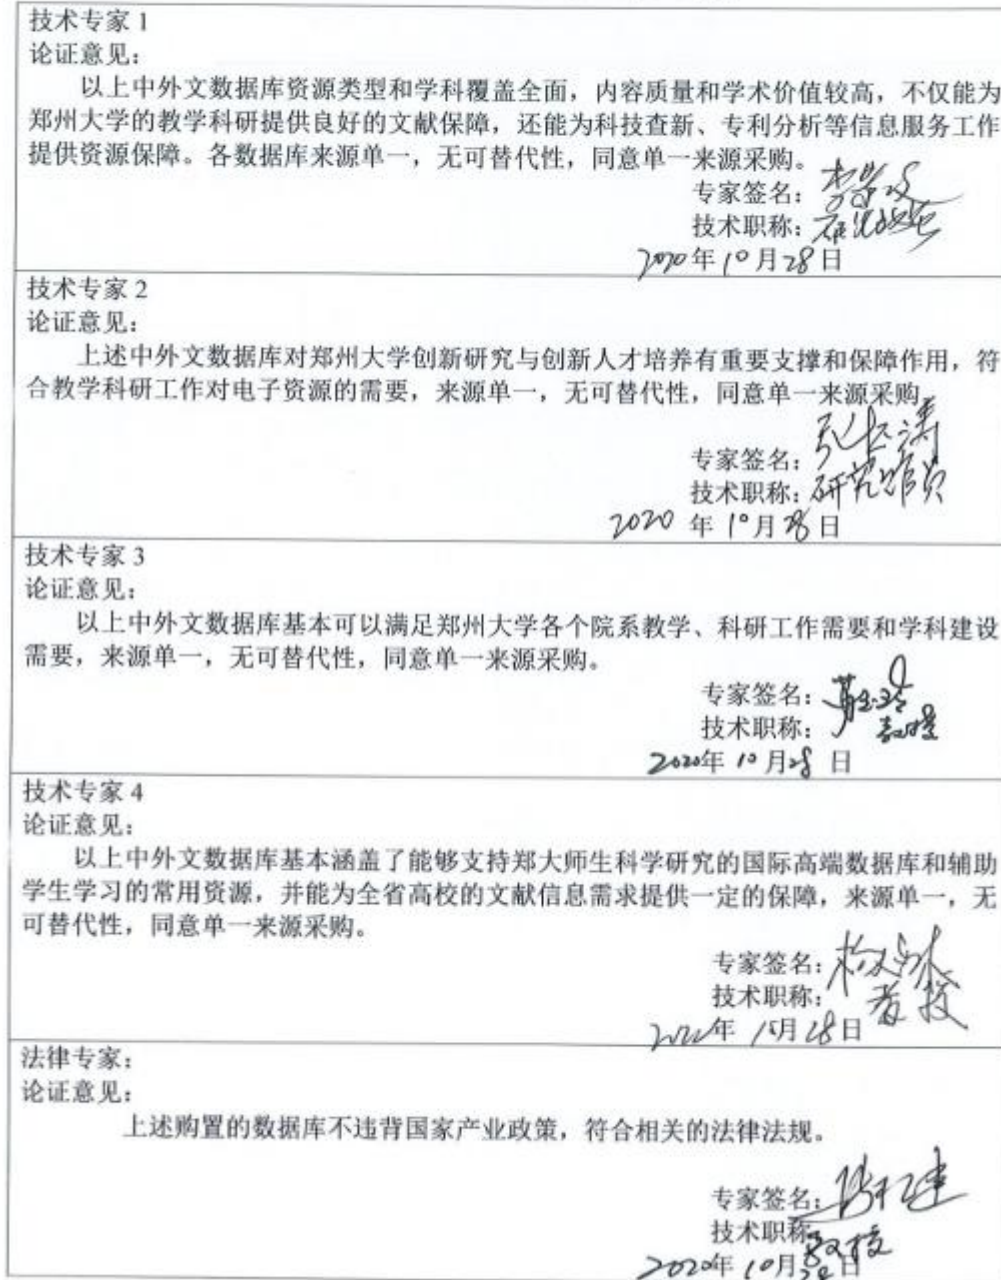 技术专家 1
论证意见：
以上中外文数据库资源类型和学科覆盖全面，内容质量和学术价值较高，不仅能为
郑州大学的教学科研提供良好的文献保障，还能为科技查新、专利分析等信息服务工作
提供资源保障。各数据库来源单一，无可替代性，同意单一来源采购。
专家签名：
技术职称：
2020年10月28日
技术专家 2
论证意见：
上述中外文数据库对郑州大学创新研究与创新人才培养有重要支撑和保障作用，符
合教学科研工作对电子资源的需要，来源单一，无可替代性，同意单一来源采购。
专家签名：
技术职称：研究馆员
2020 年 10月 28 日
技术专家 3
论证意见：
以上中外文数据库基本可以满足郑州大学各个院系教学、科研工作需要和学科建设
需要，来源单一，无可替代性，同意单一来源采购。
专家签名：
技术职称：教授
2020年 10 月28 日
技术专家 4
论证意见：
以上中外文数据库基本涵盖了能够支持郑大师生科学研究的国际高端数据库和辅助
学生学习的常用资源，并能为全省高校的文献信息需求提供一定的保障，来源单一，无
可替代性，同意单一来源采购。
专家签名：
技术职称：教授
年 10月 28日
法律专家：
论证意见：
上述购置的数据库不违背国家产业政策，符合相关的法律法规。
专家签名：
技术职称：教授
2020年 10月28日